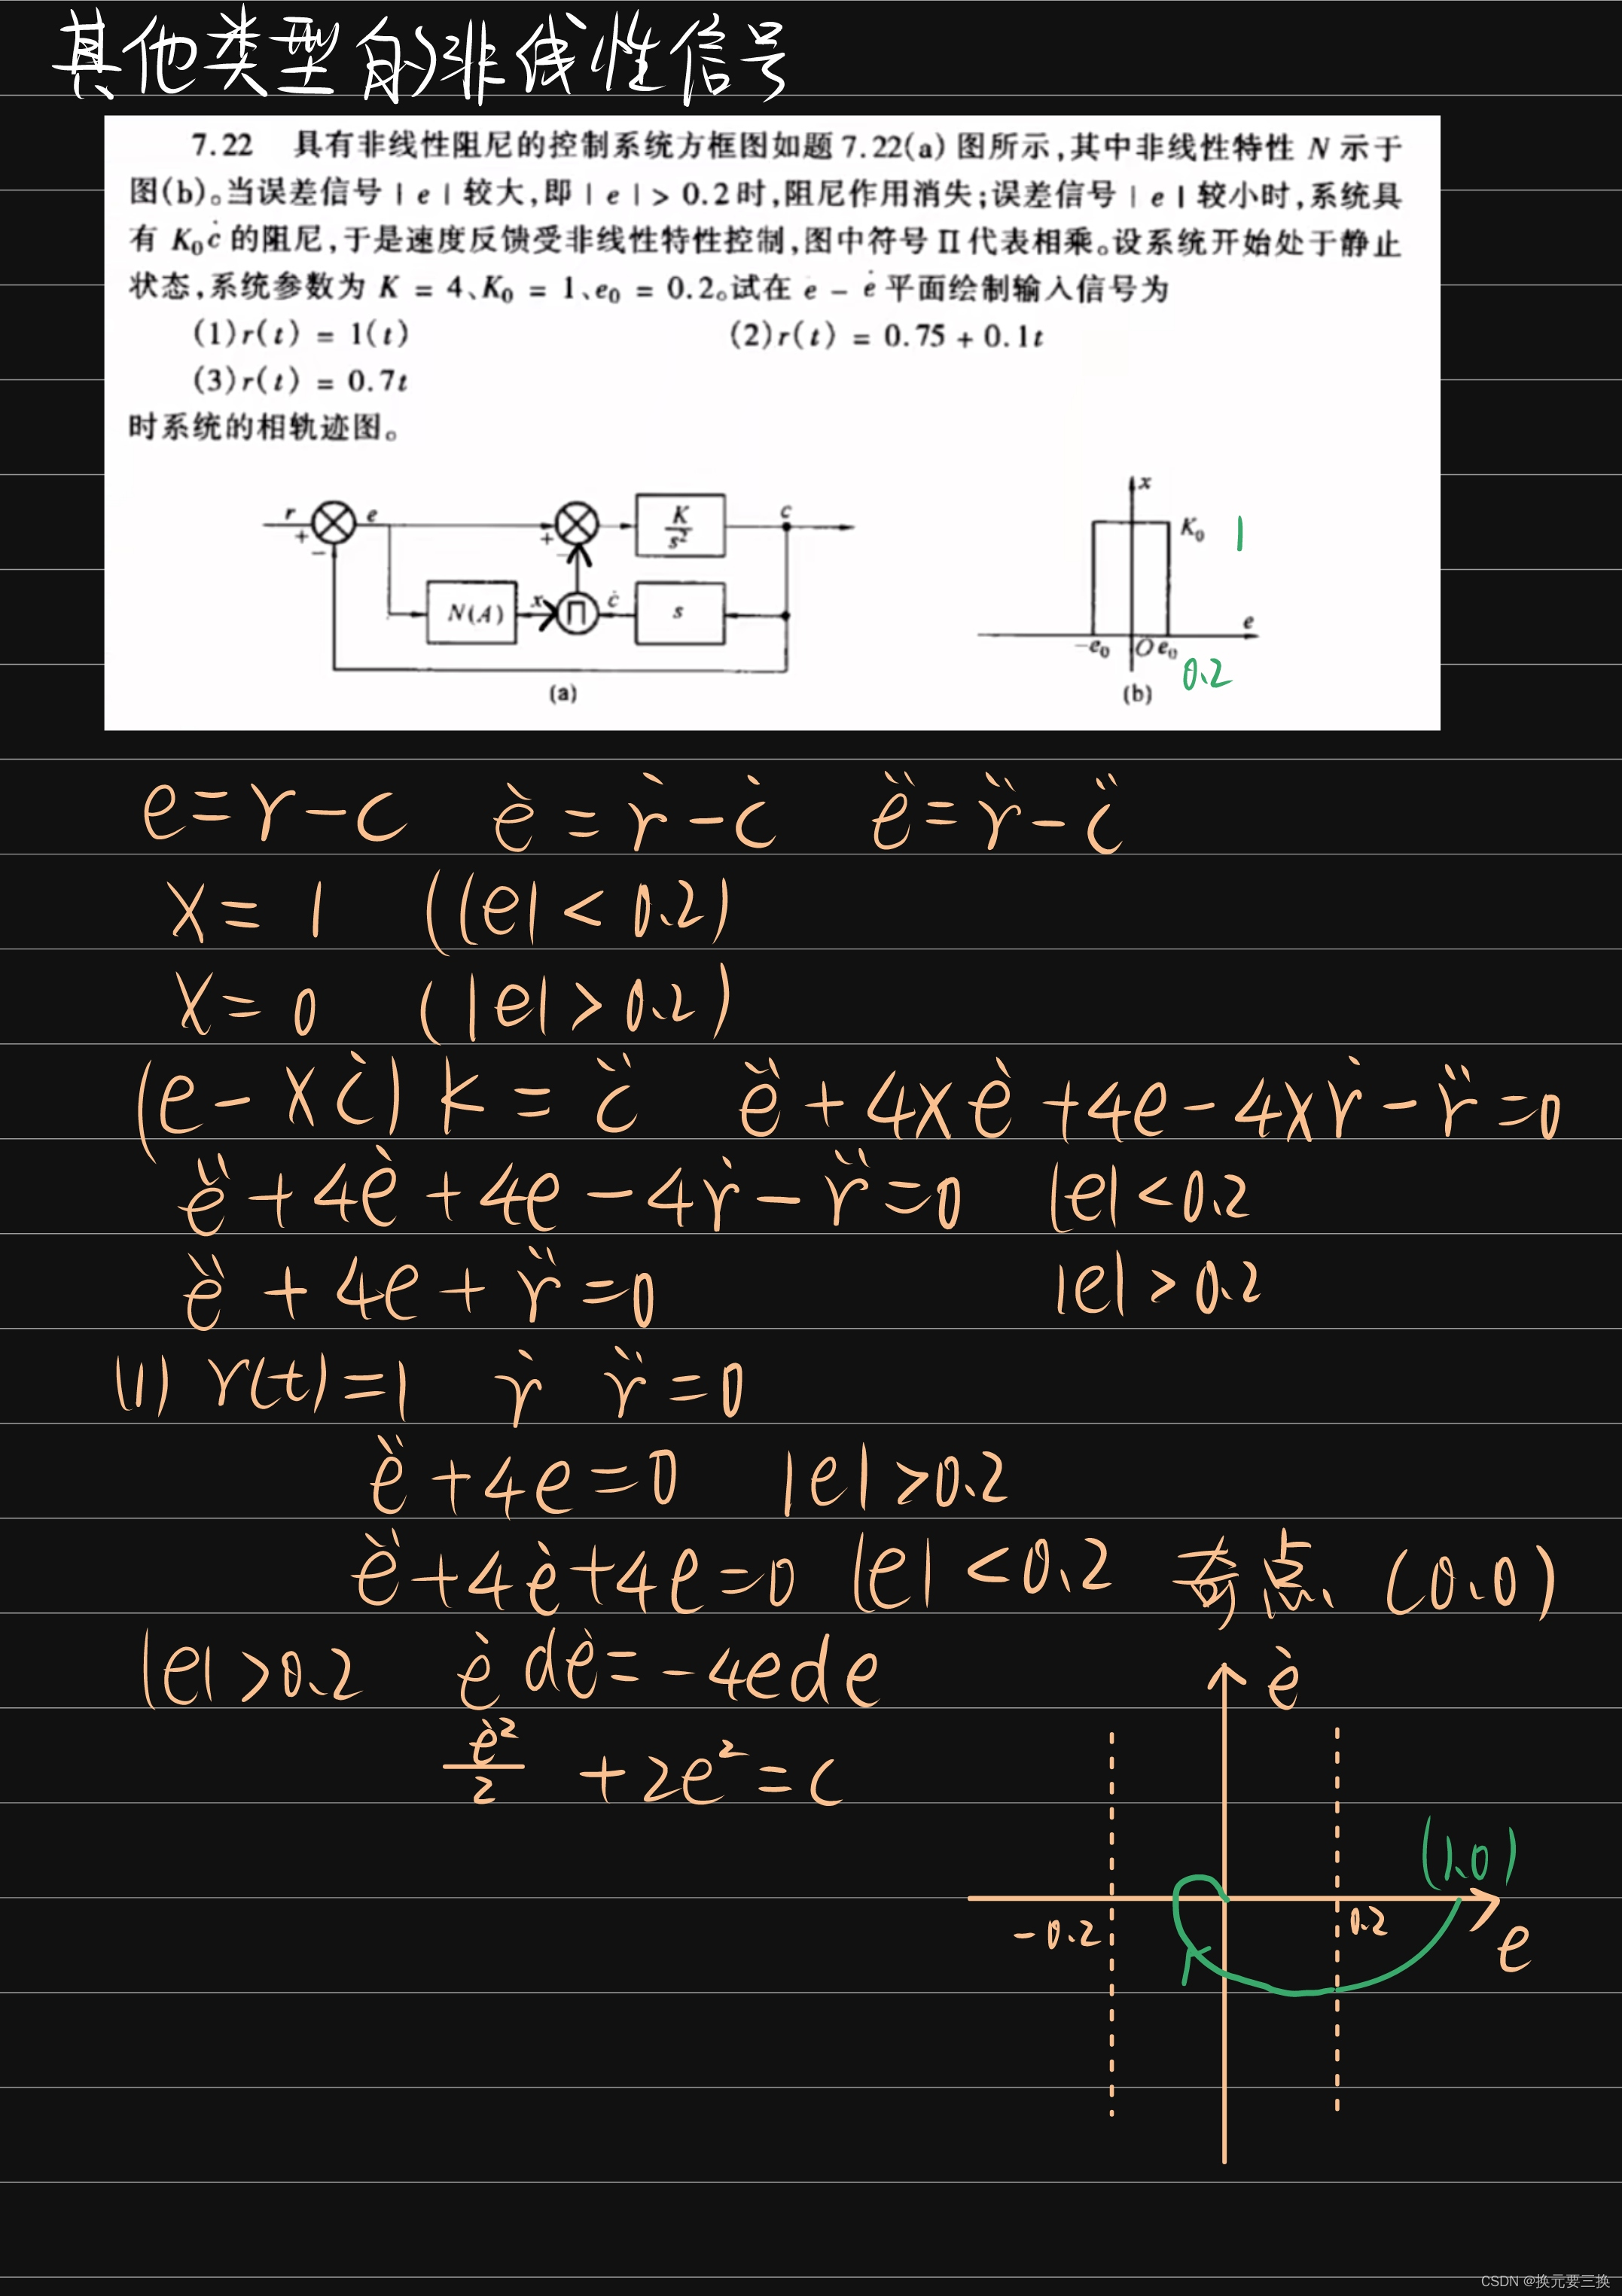 其他类型的非线性信号
7.22 具有非线性阻尼的控制系统方框图如题 7.22(a) 图所示,其中非线性特性 N 示于
图(b)。当误差信号 | e | 较大,即 | e | > 0.2 时,阻尼作用消失;误差信号 | e | 较小时,系统具
有 K₀ċ 的阻尼,于是速度反馈受非线性特性控制,图中符号 Π 代表相乘。设系统开始处于静止
状态,系统参数为 K = 4、K₀ = 1、e₀ = 0.2。试在 e - ė 平面绘制输入信号为
(1) r(t) = 1(t) (2) r(t) = 0.75 + 0.1t
(3) r(t) = 0.7t
时系统的相轨迹图。
r + − e + − K/s² c
N(A) x Π ċ s
(a)
x K₀ 1
−e₀ O e₀ e
0.2
(b)
e=r−c ė=ṙ−ċ ë=r̈−c̈
x=1 (|e|<0.2)
x=0 (|e|>0.2)
(e−xċ)k=c̈ ë+4xė+4e−4xṙ−r̈=0
ë+4ė+4e−4ṙ−r̈=0 |e|<0.2
ë+4e+r̈=0 |e|>0.2
(1) r(t)=1 ṙ r̈=0
ë+4e=0 |e|>0.2
ë+4ė+4e=0 |e|<0.2 奇点 (0.0)
|e|>0.2 ėdė=−4ede
ė²/2 +2e²=c
ė
(1.0)
−0.2 0.2 e
CSDN @换元要三换